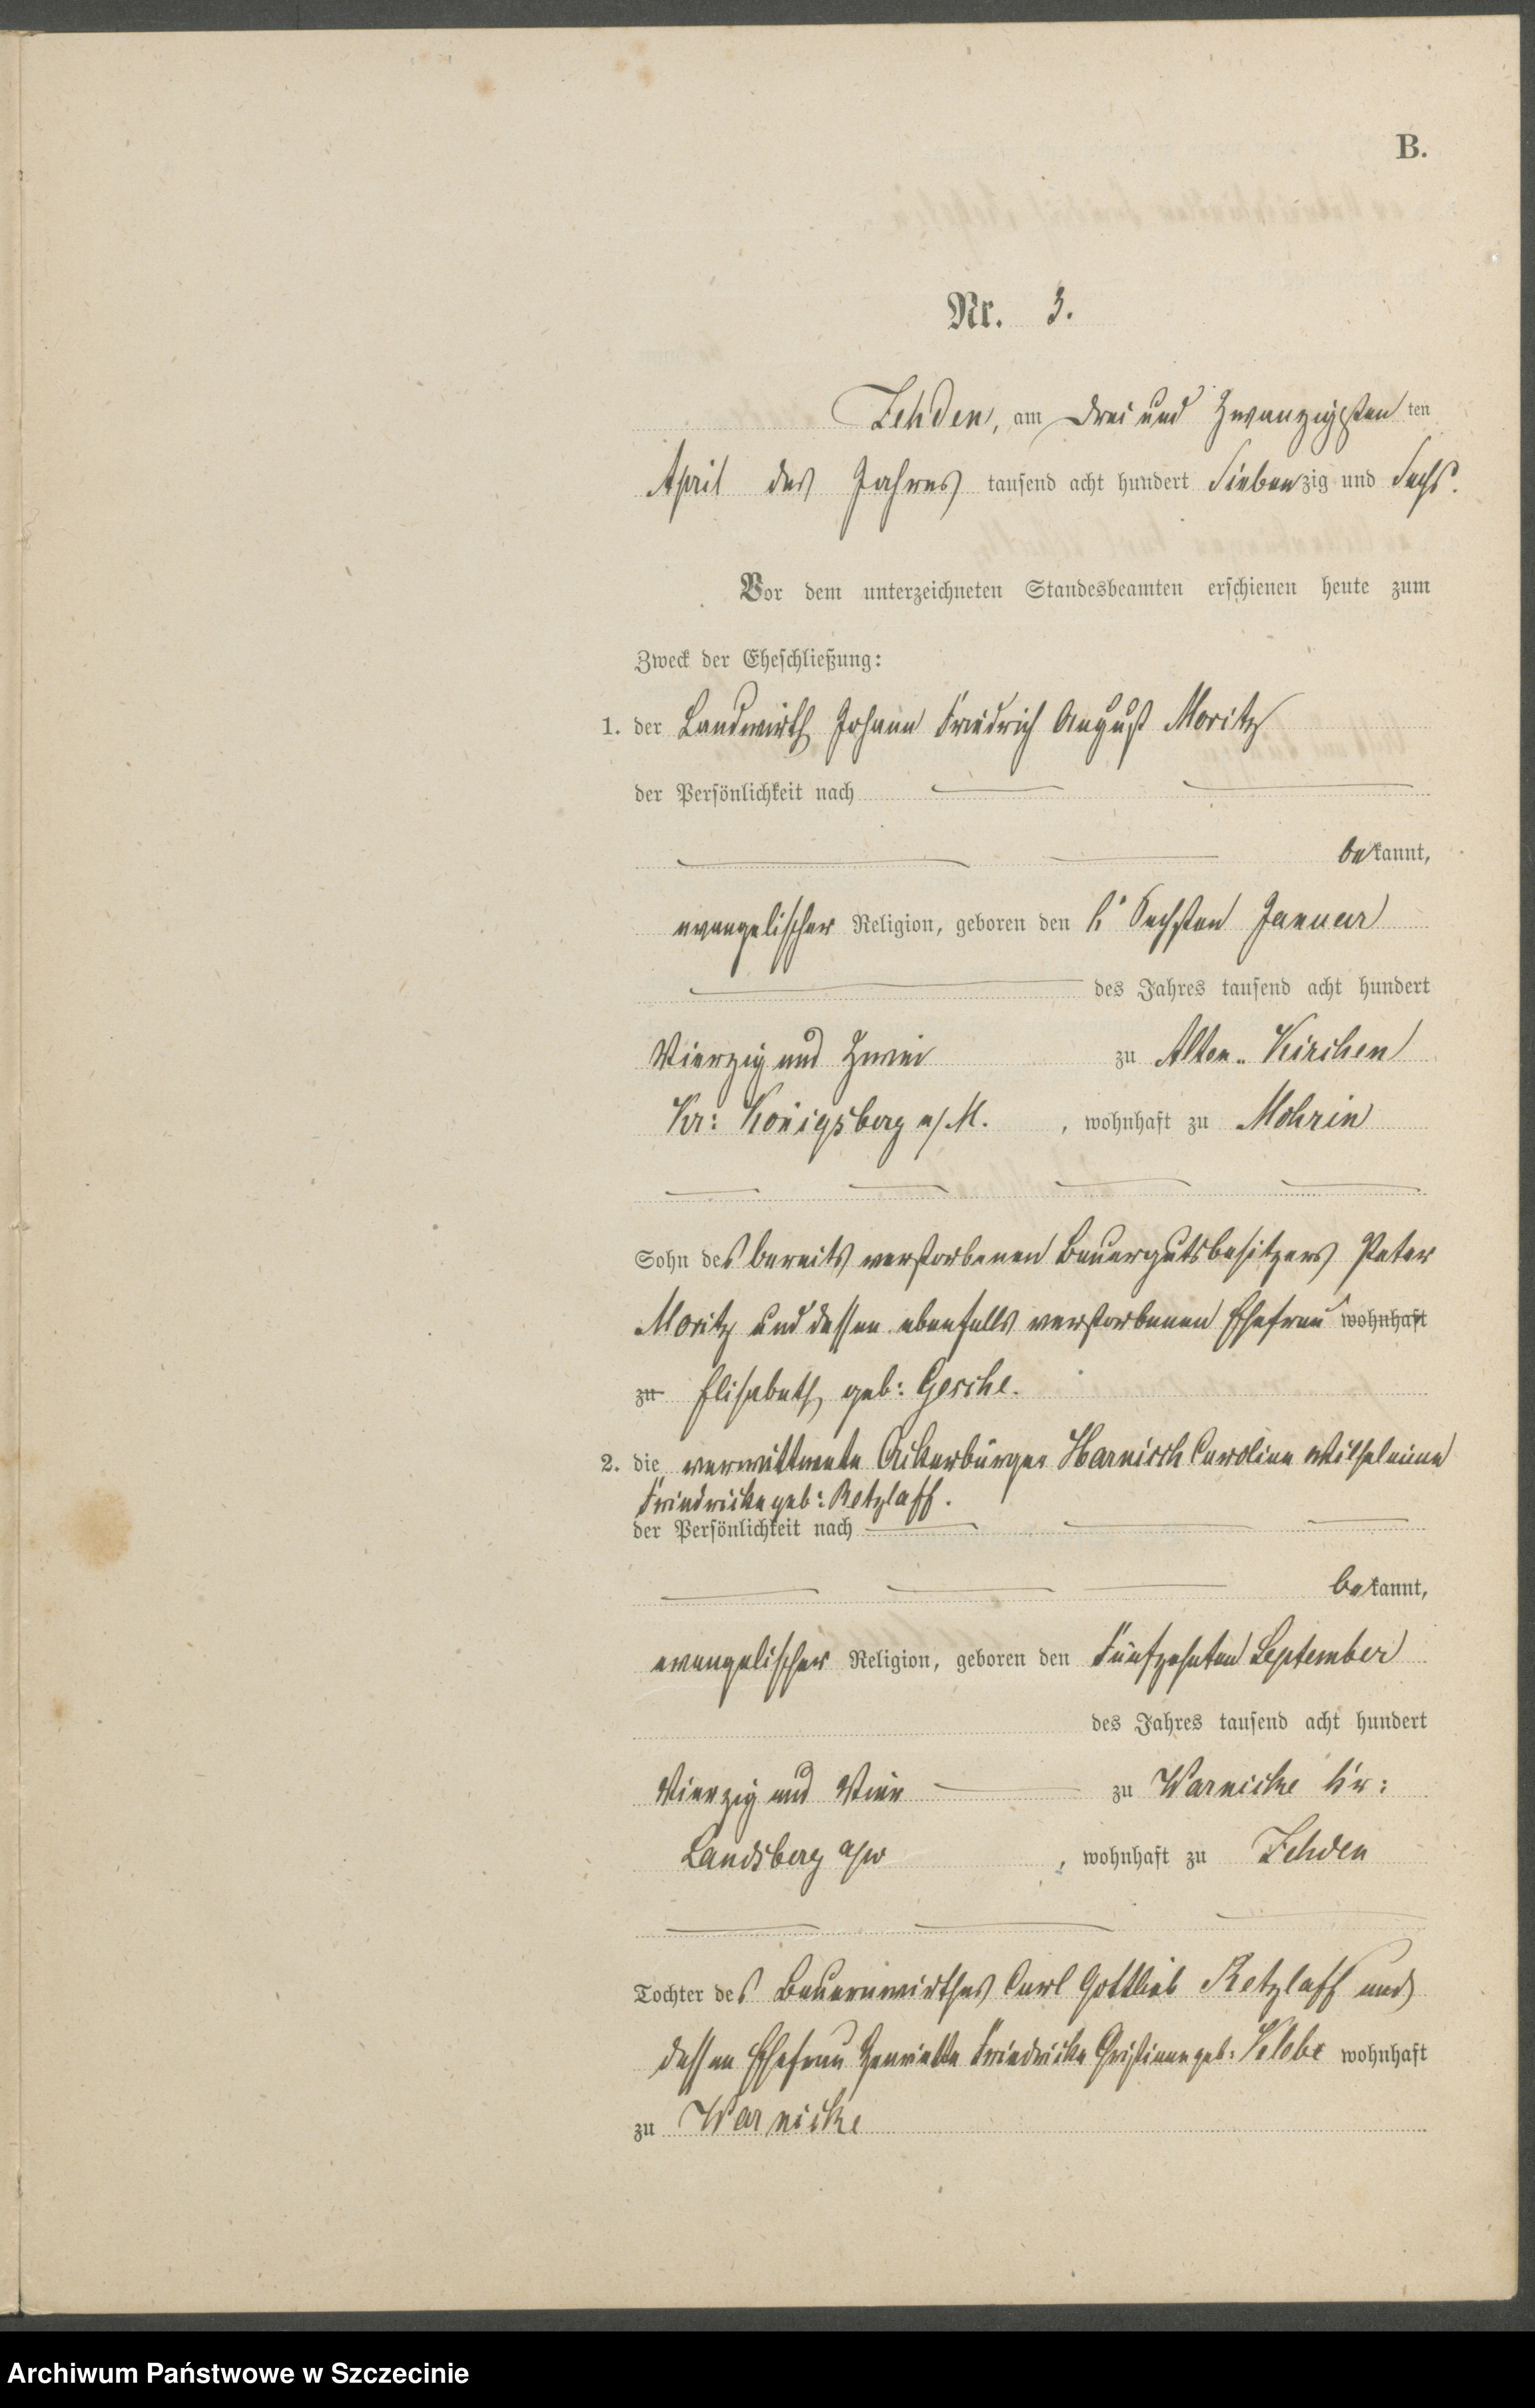 B.
Nr. 3.
Zehden, am Drei und Zwanzigsten ten
April des Jahres tausend acht hundert Siebenzig und Sechs.
Vor dem unterzeichneten Standesbeamten erschienen heute zum
Zweck der Eheschließung:
1. der Landwirth Johann Friedrich August Moritz
der Persönlichkeit nach
bekannt,
evangelischer Religion, geboren den Sechsten Januar
des Jahres tausend acht hundert
Vierzig und Zwei zu Alten-Kirchen
Kr: Königsberg n/M., wohnhaft zu Mohrin
Sohn des bereits verstorbenen Bauergutsbesitzers Peter
Moritz und dessen ebenfalls verstorbenen Ehefrau wohnhaft
zu Elisabeth, geb: Gesche.
2. die verwittwete Ackerbürger Harnisch Caroline Wilhelmine
Friedricke geb: Retzlaff.
der Persönlichkeit nach
bekannt,
evangelischer Religion, geboren den Fünfzehnten September
des Jahres tausend acht hundert
Vierzig und Vier zu Warnicke Kr:
Landsberg a/w, wohnhaft zu Zehden
Tochter des Bauernwirthes Carl Gottlieb Retzlaff und
dessen Ehefrau Henriette Friedricke Christiane geb: wohnhaft
zu Warnicke
Archiwum Państwowe w Szczecinie